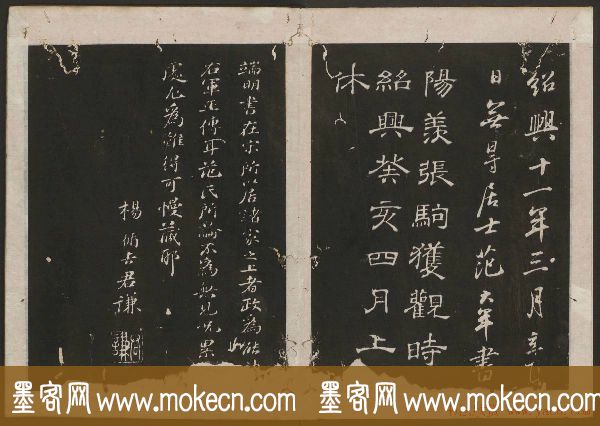 紹興十一年三月
日無㝵居士范大年書
陽羨張駒獲觀時
紹興癸亥四月上
休
端明書在宋所以居諸家之上者政為
右軍正傳耳施民所論不為無見
為難得可慢藏耶
楊
君謙
墨客网 www.mokecn.com 墨客网 www.mokecn.com